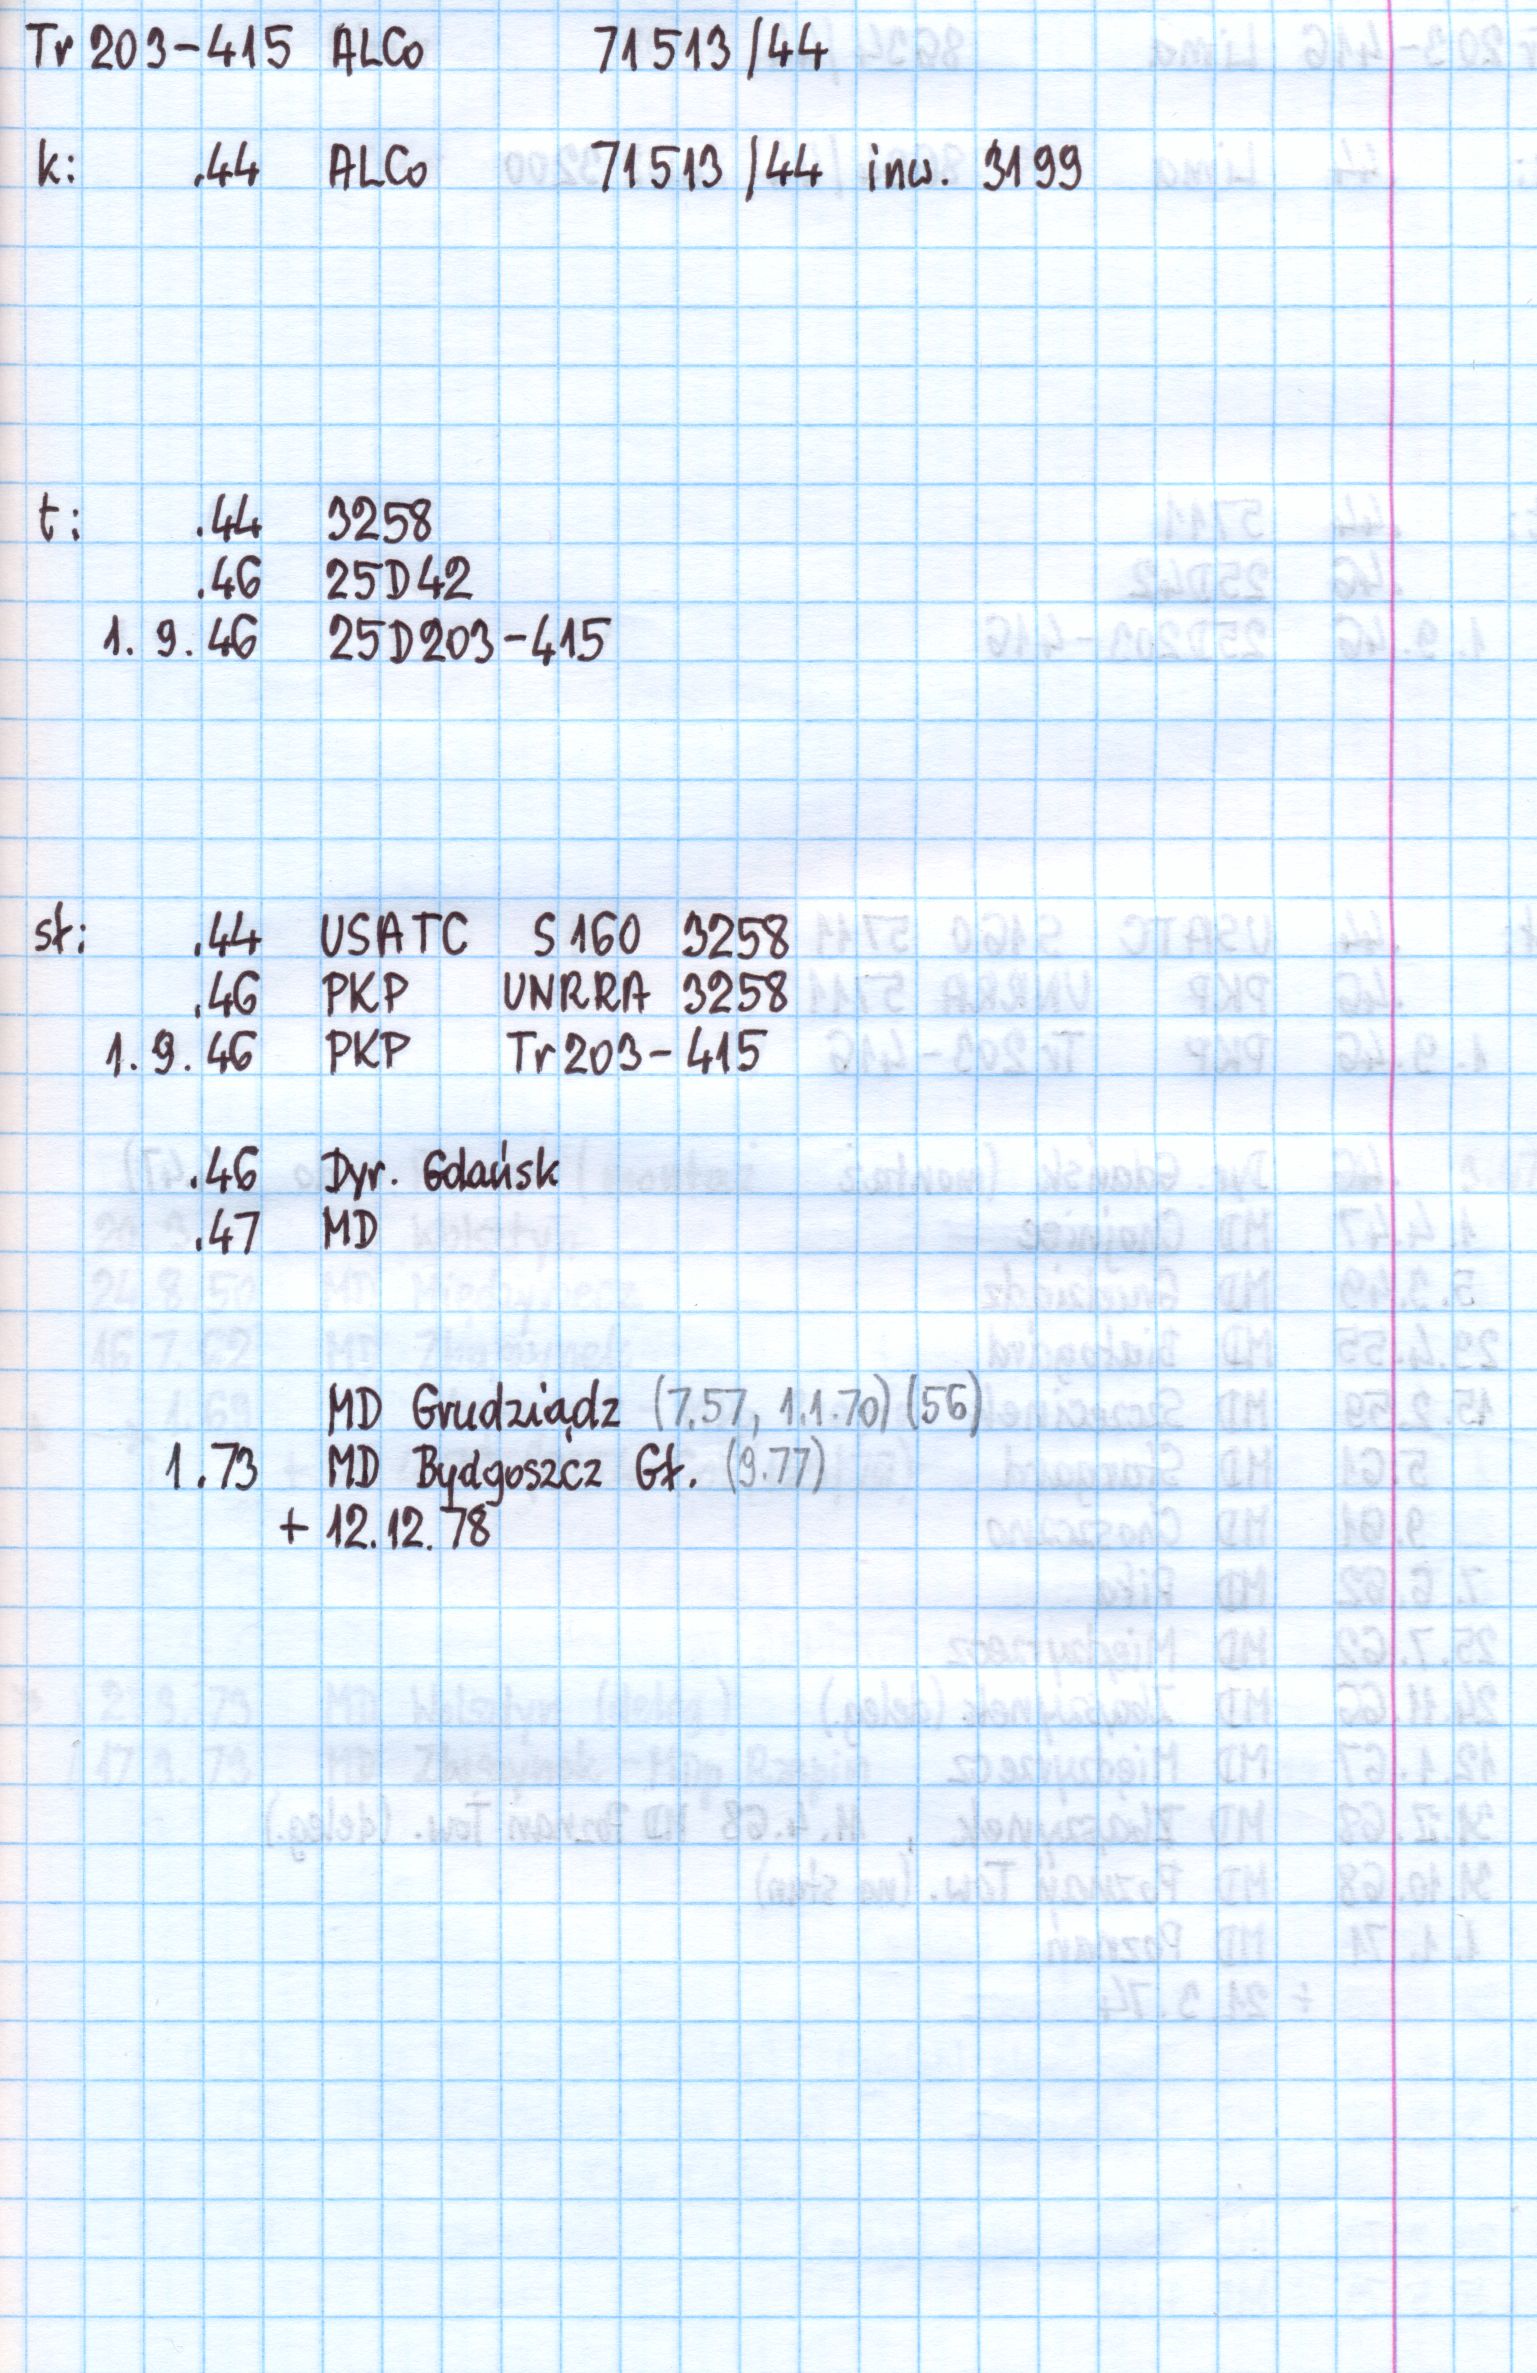 Tr 203-415 ALCo 71513/44
k: .44 ALCo 71513/44 inw. 3199
t: .44 3258
.46 25D42
1.9.46 25D203-415
sł: .44 USATC S160 3258
.46 PKP UNRRA 3258
1.9.46 PKP Tr203-415
.46 Dyr. Gdańsk
.47 MD
MD Grudziądz (7.57, 1.1.70) (56)
1.73 MD Bydgoszcz Gł. (9.77)
+ 12.12.78